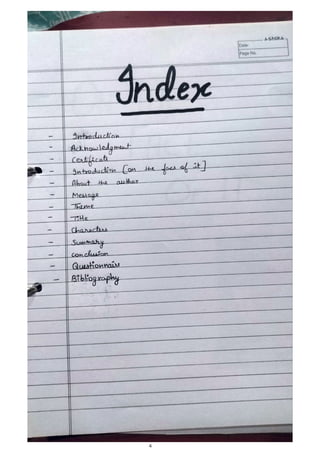 Date:
Page No.
Index
- Introduction
- Acknowledgment
- Certificate
- Introduction [on the face of it]
- About the author
- Message
- Theme
- Title
- Characters
- Summary
- Conclusion
- Questionnaire
- Bibliography
4